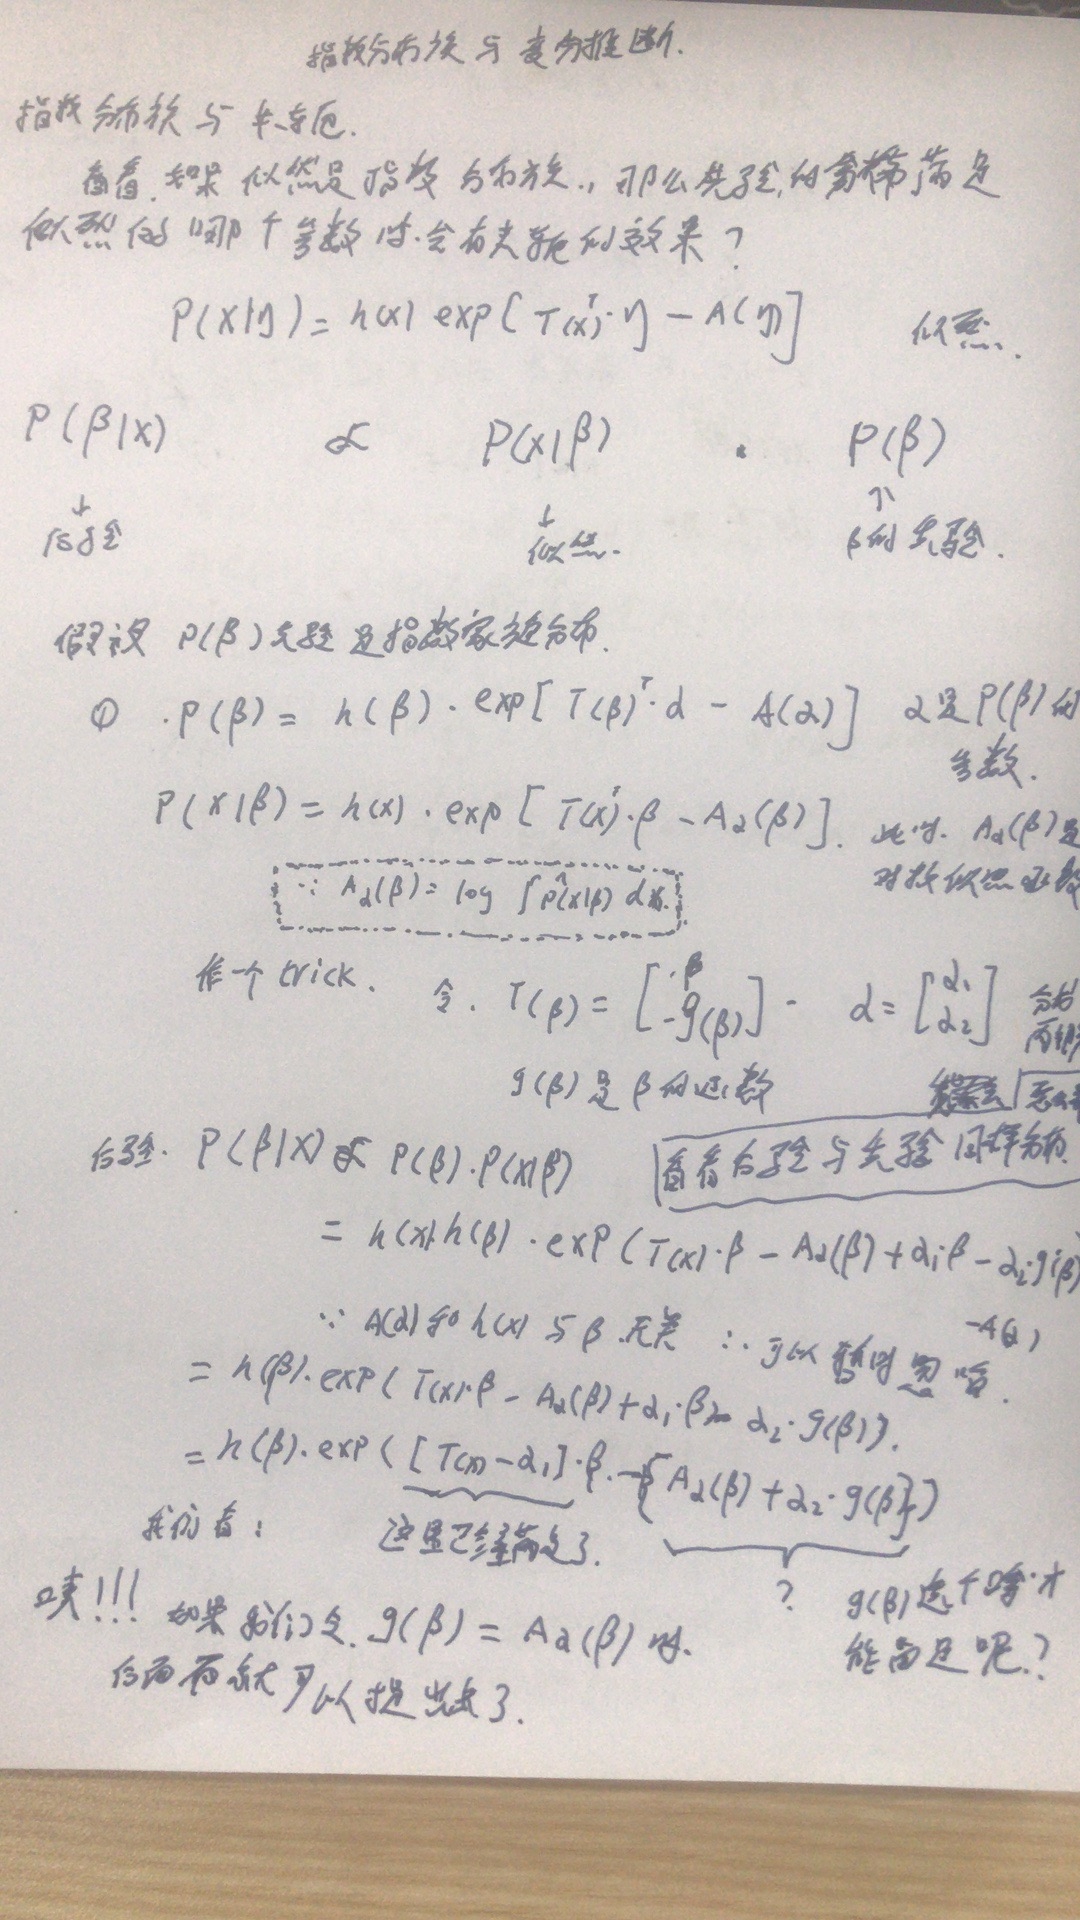 指数分布族与变分推断.
指数分布族与共轭.
看看,如果似然是指数分布族.,那么先验,的 满足
似然的哪个参数时.会有共轭的效果?
P(x|η) = h(x) exp[T(x)ᵀ·η - A(η)] 似然.
P(β|x) ∝ P(x|β) · P(β)
↓ ↓ ↑
后验 似然. β的先验.
假设 P(β)先验是指数家族分布.
① .P(β) = h(β)·exp[T(β)ᵀ·α - A(α)] α是P(β)的
参数.
P(x|β) = h(x)·exp[T(x)ᵀ·β - A₂(β)]. 此时. A₂(β)是
对数似然函数
∵ A₂(β) = log ∫p̂(x|β) dx.
作一个trick. 令. T(β) = [β -g(β)] - α = [α₁ α₂] 分为
两组
g(β)是β的函数 怎么
后验. P(β|x) ∝ P(β).P(x|β) 看看后验与先验同样分布.
= h(x)h(β)·exp(T(x)·β - A₂(β) + α₁·β - α₂·g(β)
-A(α))
∵ A(α)和h(x)与β.无关 ∴可以暂时忽略.
= h(β).exp(T(x)·β - A₂(β) + α₁·β - α₂·g(β)).
= h(β).exp([T(x) - α₁]·β. -{A₂(β) + α₂·g(β)})
我们看: 这里已经满足了. ? g(β)选个啥才
能满足呢.?
咦!!! 如果我们令. g(β) = A₂(β) 时.
后面而就可以提出去了.